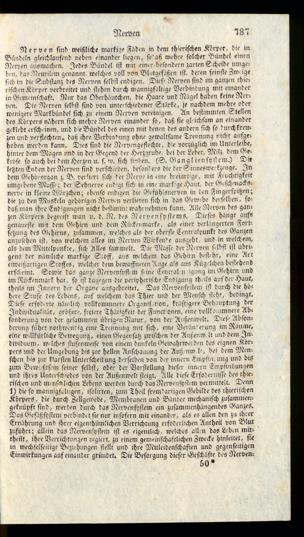 Nerven 787
Nerven sind weißliche markige Fäden in dem thierischen Körper, die in
Bündeln gleichlaufend neben einander liegen, so daß mehre solcher Bündel einen
Nerven ausmachen. Jedes Bündel ist mit einer besondern zarten Scheide umge-
ben, das Nevrilem genannt, welches voll von Blutgefäßen ist, deren feinste Zweige
sich in die Substanz des Nerven selbst endigen. Diese Nerven sind im ganzen thie-
rischen Körper verbreitet und stehen durch mannigfaltige Verbindung mit einander
in Gemeinschaft. Nur das Oberhäutchen, die Haare und Nägel haben keine Ner-
ven. Die Nerven selbst sind von unterschiedener Stärke, je nachdem mehre oder
wenigere Markbündel sich zu einem Nerven vereinigen. An bestimmten Stellen
des Körpers nähern sich mehre Nerven einander so, daß sie gleichsam an einander
geklebt erscheinen, und die Bündel des einen mit denen des andern sich so durchkreu-
zen und verflechten, daß ihre Verbindung ohne gewaltsame Trennung nicht aufge-
hoben werden kann. Dies sind die Nervengeflechte, die vorzüglich im Unterleibe,
hinter dem Magen und in der Gegend der Herzgrube, bei der Leber, Milz, dem Ge-
kröse, so auch bei dem Herzen u. s. w. sich finden. (S. Gangliensystem.) Die
letzten Enden der Nerven sind verschieden, besonders die der Sinneswerkzeuge. In
dem Gehörorgan z. B. verliert sich der Nerv in eine breiartige, mit Feuchtigkeit
umgebene Masse; der Sehnerve endigt sich in eine markige Haut, der Geschmacks-
nerv in kleine Wärzchen; ebenso endigen die Gefühlsnerven in den Fingerspitzen;
die zu den Muskeln gehörigen Nerven verlieren sich in das Gewebe derselben, so-
daß man ihre Endigungen nicht deutlich wahrnehmen kann. Alle Nerven des gan-
zen Körpers begreift man u. d. N. des Nervensystems. Dieses hängt aufs
genaueste mit dem Gehirn und dem Rückenmarke, als einer verlängerten Fort-
setzung des Gehirns, zusammen, welches als der oberste Centralpunkt des Ganzen
anzusehen ist, von welchem alles im Nerven Wirkende ausgeht, und in welchem,
als dem Mittelpunkte, sich Alles sammelt. Die Masse der Nerven selbst ist übri-
gens der nämliche markige Stoff, aus welchem das Gehirn besteht, eine Art
eiweißartigen Stoffes, welcher dem bewaffneten Auge als aus Kügelchen bestehend
erscheint. Sowie das ganze Nervensystem seine Centralendigung im Gehirn und
im Rückenmark hat, so ist dagegen die peripherische Endigung theils auf der Haut,
theils im Innern der Organe ausgebreitet. Das Nervensystem ist durch die hö-
here Stufe des Lebens, auf welchem das Thier und der Mensch steht, bedingt.
Diese erfodert nämlich vollkommnere Organisation, kräftigere Behauptung der
Individualität, größere, freiere Thätigkeit der Functionen, eine vollkommnere Ab-
sonderung von der gesammten übrigen Natur, von der Außenwelt. Diese Abson-
derung führt nothwendig eine Trennung mit sich, eine Veränderung im Raume,
eine willkürliche Bewegung, einen Gegensatz zwischen der Außenwelt und dem In-
dividuum, welches stufenweise von einem dunkeln Gewahrwerden des eignen Kör-
pers und der Umgebung bis zur hellen Anschauung der Außenwelt, bei dem Men-
schen bis zur klarsten Unterscheidung derselben von der innern Empfindung und bis
zum Bewußtsein seiner selbst, oder der Vorstellung dieser innern Empfindungen
und ihres Unterschiedes von der Außenwelt steigt. Alle diese Erfodernisse des thie-
rischen und menschlichen Lebens werden durch das Nervensystem vermittelt. Denn
1) die so mannigfaltigen, isolirten, zum Theil fremdartigen Gebilde des thierischen
Körpers, die durch Zellgewebe, Membranen und Bänder mechanisch zusammen
geknüpft sind, werden durch das Nervensystem ein zusammenhängendes Ganzes.
Das Gefäßsystem verbindet sie nur insofern mit einander, als es allen den zu ihrer
Ernährung und ihrer eigenthümlichen Verrichtung erfoderlichen Antheil von Blut
zuführt; allein das Nervensystem ist es eigentlich, welches allen das Leben mit-
theilt, ihre Verrichtungen regiert, zu einem gemeinschaftlichen Zwecke hinleitet, sie
in wechselseitige Beziehungen stellt und ihre Mitleidenschaften und gegenseitigen
Einwirkungen auf einander gründet. Die Besorgung dieser Geschäfte des Nerven-
50*